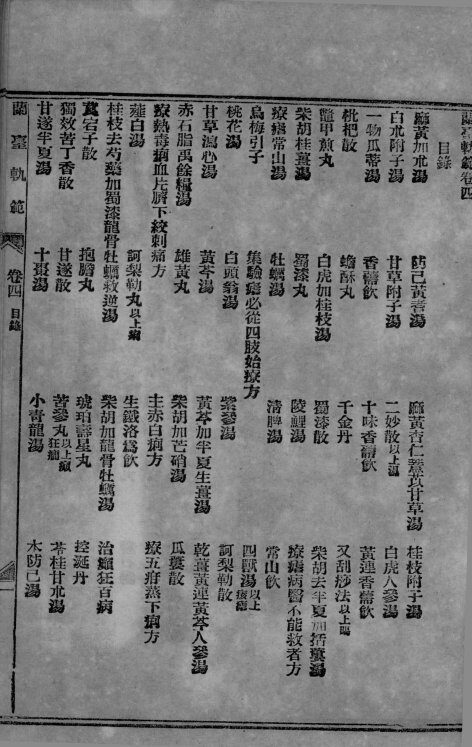 蘭臺軌範卷四
目錄
麻黃加朮湯 防己黃耆湯 麻黃杏仁薏苡甘草湯 桂枝附子湯
白朮附子湯 甘草附子湯 二妙散以上濕 白虎人參湯
一物瓜蒂湯 香薷飲 十味香薷飲 黃連香薷飲
枇杷散 蟾酥丸 千金丹 又刮痧法以上暍
鱉甲煎丸 白虎加桂枝湯 蜀漆散 柴胡去半夏加括蔞湯
柴胡桂薑湯 蜀漆丸 陵鯉湯 療瘧病醫不能救者方
療瘧常山湯 牡蠣湯 清脾湯 常山飲
烏梅引子 集驗瘧必從四肢始療方 四獸湯以上痎瘧
桃花湯 白頭翁湯 紫參湯 訶梨勒散
甘草瀉心湯 黃芩湯 黃芩加半夏生薑湯 乾薑黃連黃芩人參湯
赤石脂禹餘糧湯 雄黃丸 柴胡加芒硝湯 瓜蔞散
療熱毒痢血片臍下絞刺痛方 主赤白痢方 療五疳蒸下痢方
薤白湯 訶梨勒丸以上痢 生鐵洛爲飲 治癲狂百病
桂枝去芍藥加蜀漆龍骨牡蠣救逆湯 柴胡加龍骨牡蠣湯
莨菪子散 抱膽丸 琥珀壽星丸 控涎丹
獨效苦丁香散 甘遂散 苦參丸以上癲狂癎 苓桂甘朮湯
甘遂半夏湯 十棗湯 小青龍湯 木防己湯
蘭臺軌範 卷四 目錄